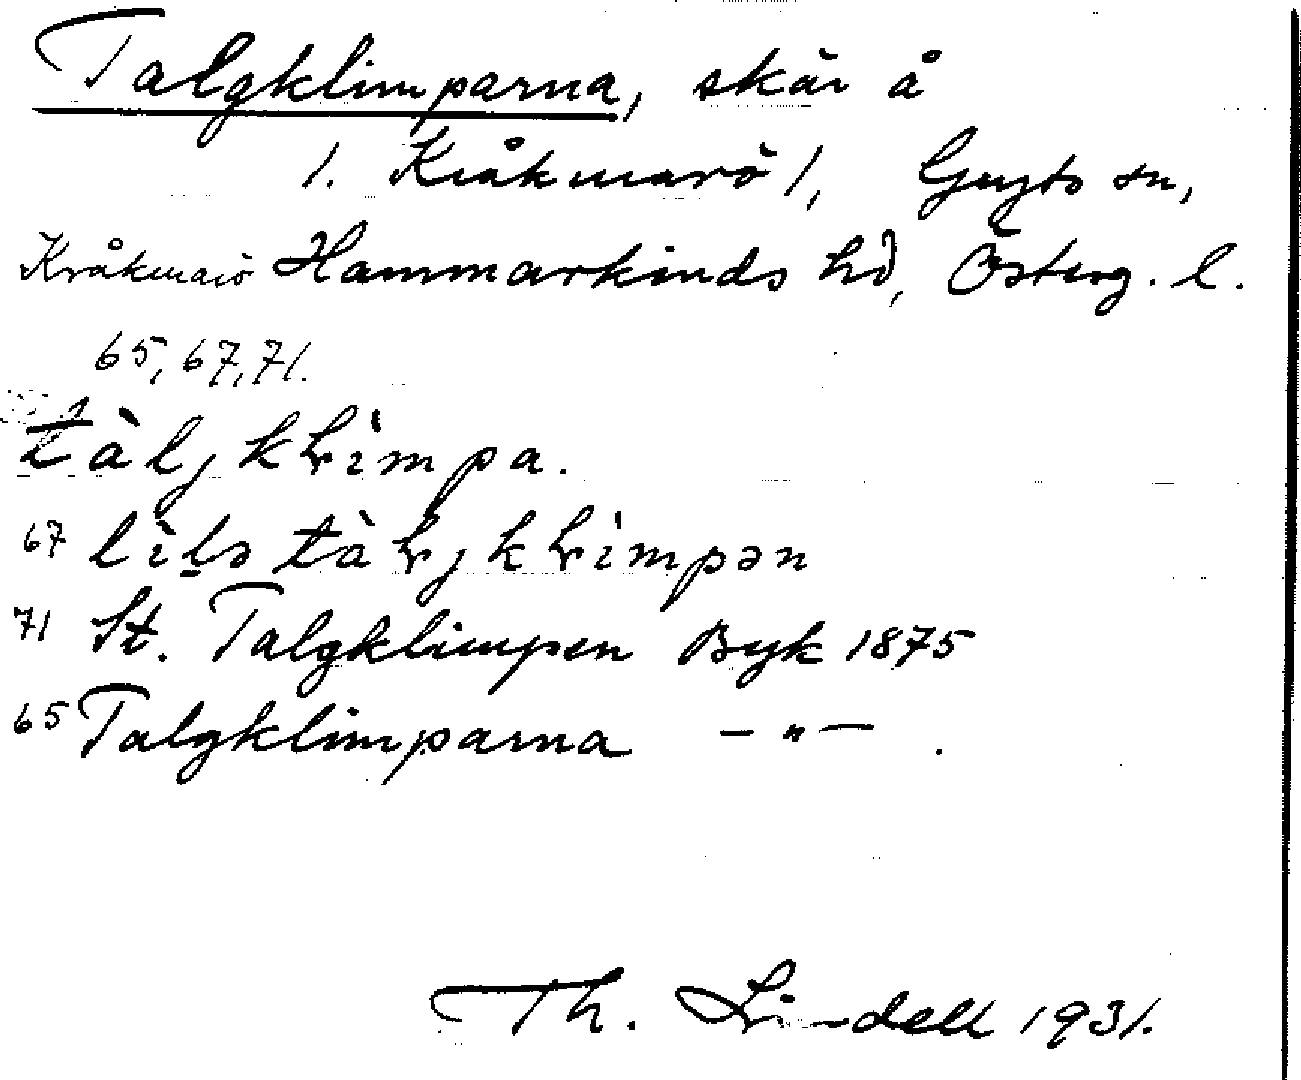 Talgklimparna, skär å
1. Kråkmarö 1, Gryts sn,
Kråkmarö Hammarkinds hd, Österg. l.
65, 67, 71.
tàljklìmpa.
67 lìlə tàljklìmpən
71 St. Talgklimpen Byk 1875
65 Talgklimparna — " — .
Th. Lindell 1931.